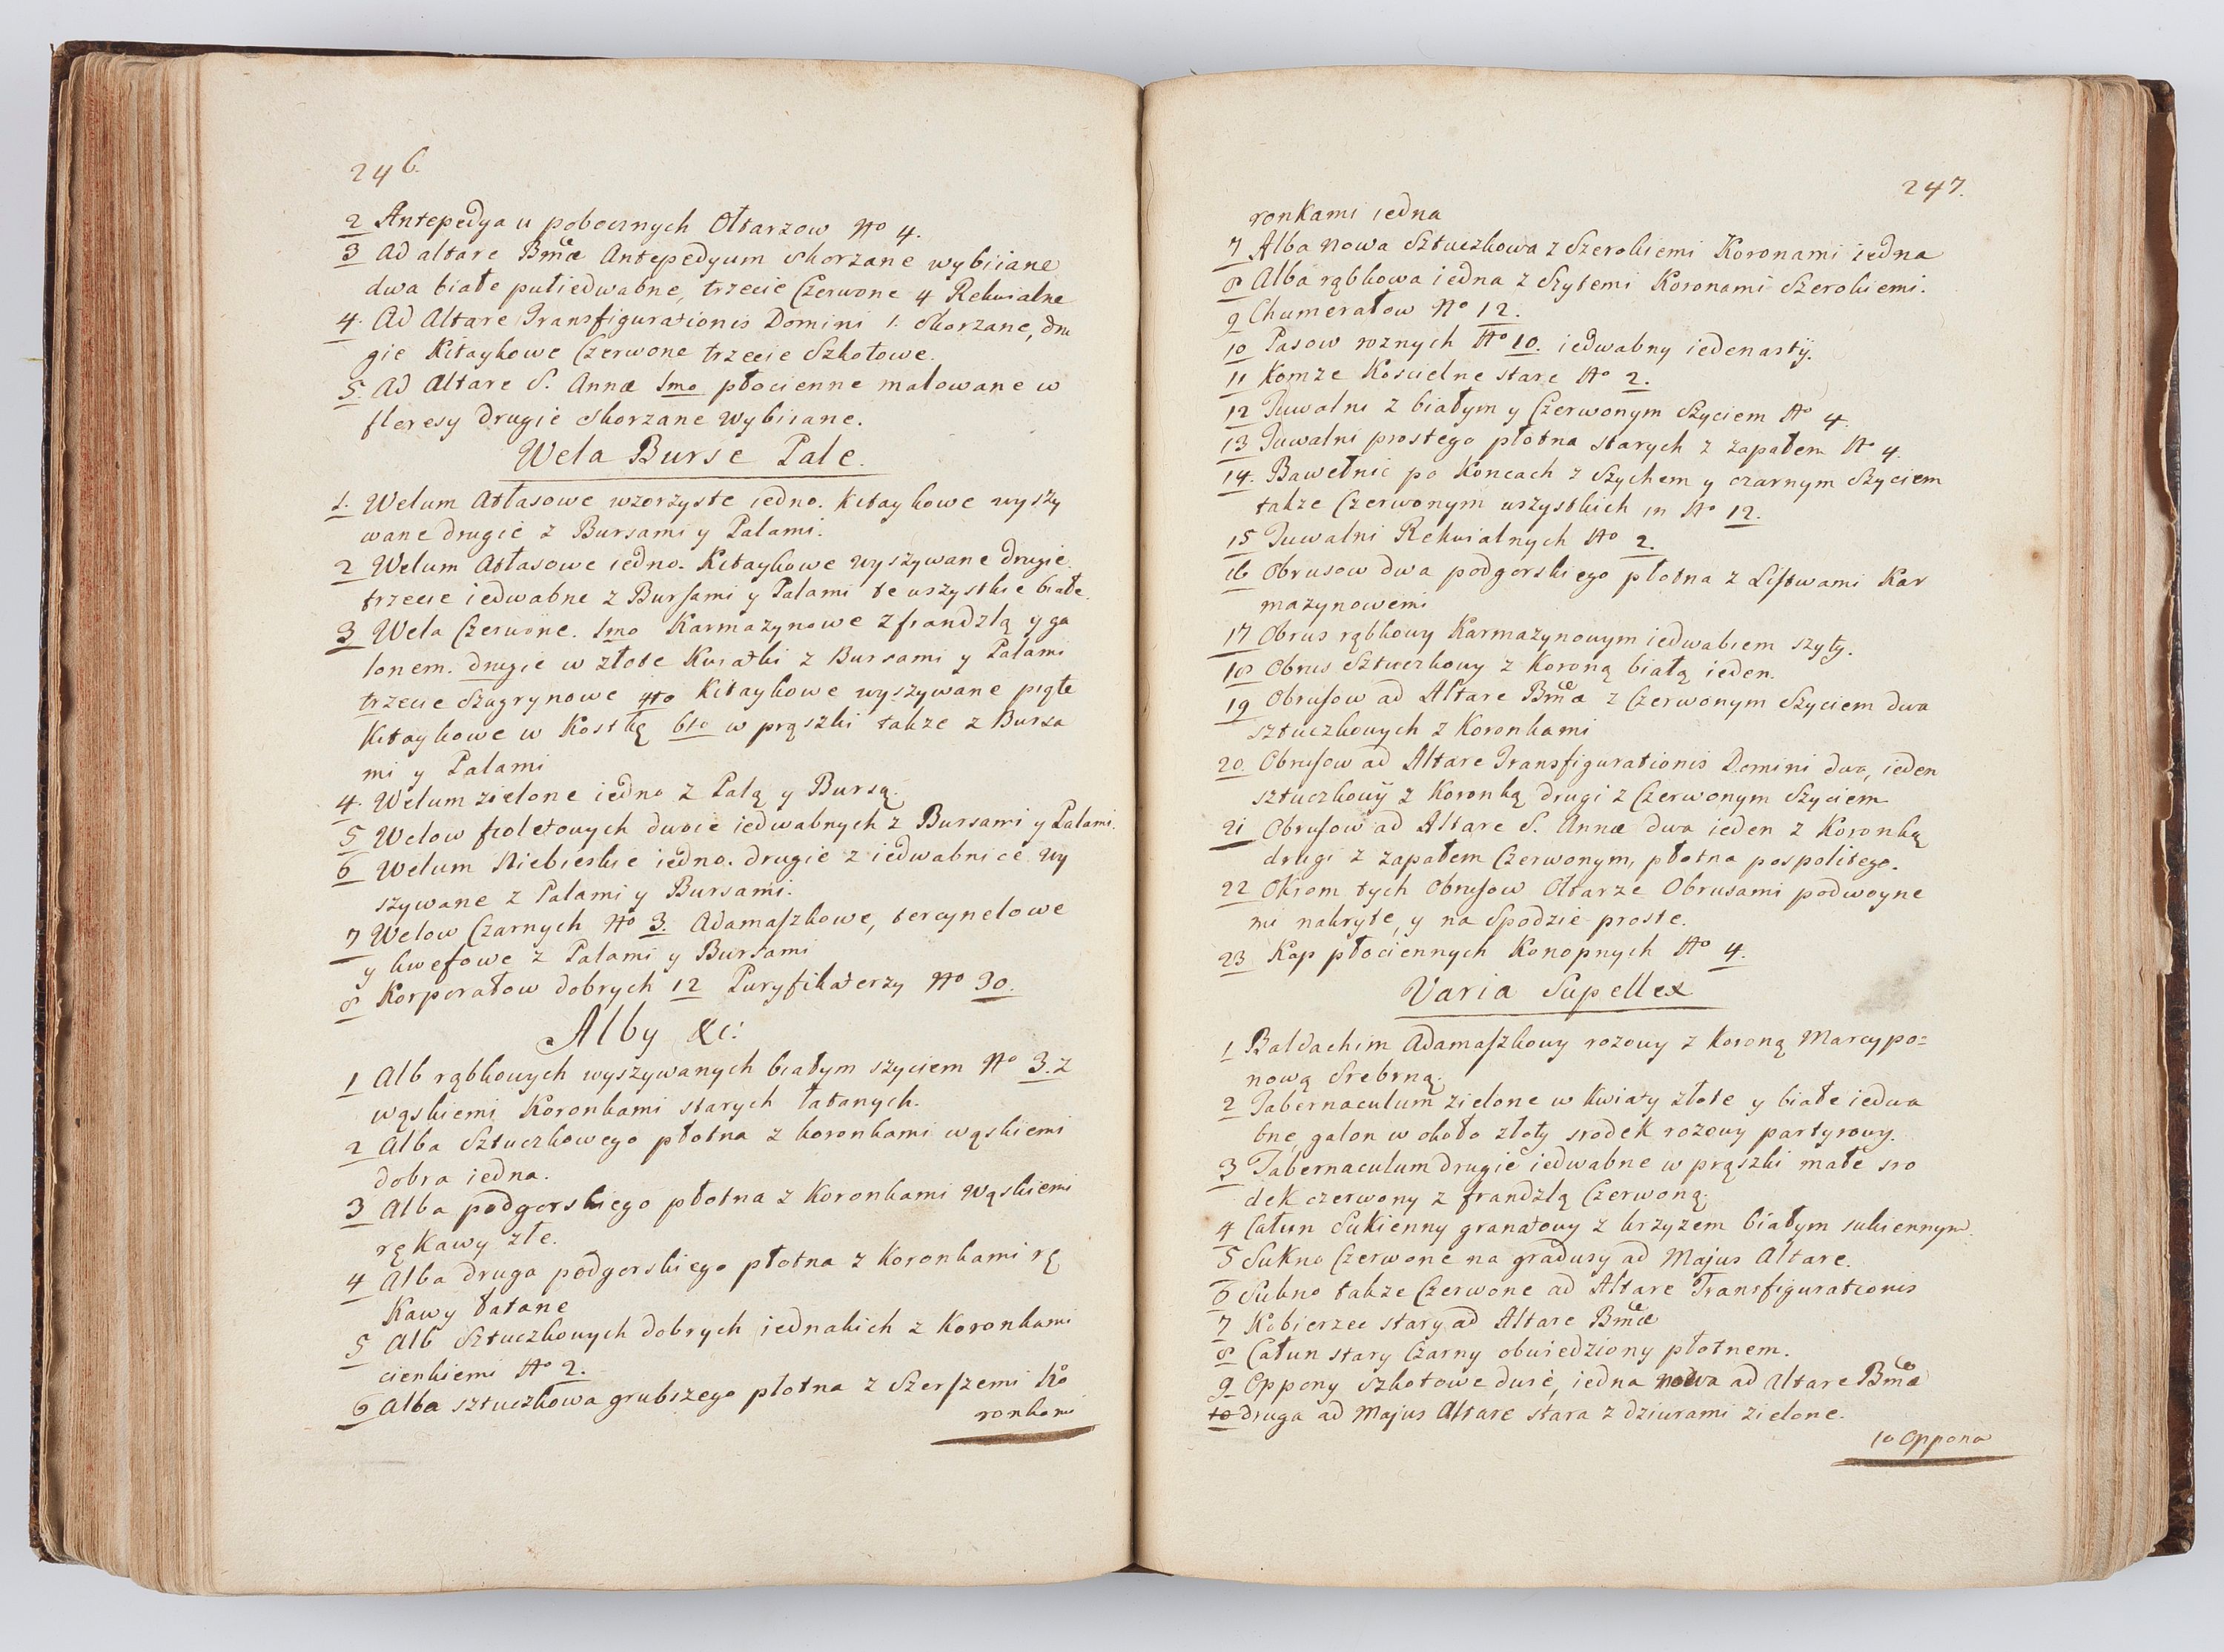 246.
2 Antepedya u pobocznych Ołtarzow No 4.
3 Ad altare Bmæ Antepedyum skorzane wybiiane
dwa białe pułiedwabne, trzecie Czerwone 4 Rekwialne
4. Ad Altare Transfigurationis Domini 1. skorzane, dru
gie Kitaykowe Czerwone trzecie Szkotowe.
5. Ad Altare S. Annæ 1mo płocienne malowane w
fleresy drugie skorzane wybiiane.
Wela Burse Pale.
1. Welum Atłasowe wzorzyste iedno. Kitaykowe wyszy
wane drugie z Bursami y Palami.
2 Welum Atłasowe iedno. Kitaykowe wyszywane drugie.
trzecie iedwabne z Bursami y Palami te wszystkie białe.
3 Wela Czerwone. 1mo Karmazynowe z frandzlą y ga
lonem. drugie w złote Kwiatki z Bursami y Palami
trzecie Szagrynowe 4to Kitaykowe wyszywane piąte
Kitaykowe w Kostkę 6to w prąszki także z Bursa
mi y Palami
4. Welum zielone iedno z Palą y Bursą.
5 Welow fioletowych dwoie iedwabnych z Bursami y Palami.
6 Welum Niebieskie iedno. drugie z iedwabnice wy
szywane z Palami y Bursami.
7 Welow Czarnych No 3. Adamaszkowe, tercynelowe
y kwefowe z Palami y Bursami
8 Korporałow dobrych 12 Puryfikaterzy No 30.
Alby &c:
1 Alb rąbkowych wyszywanych białym szyciem No 3. z
wąskiemi Koronkami starych łatanych.
2 Alba Sztuczkowego płotna z koronkami wąskiemi
dobra iedna.
3 Alba podgorskiego płotna z Koronkami wąskiemi
rękawy złe.
4 Alba druga podgorskiego płotna z Koronkami rę
Kawy łatane
5 Alb Sztuczkowych dobrych iednakich z Koronkami
cienkiemi No 2.
6 Alba sztuczkowa grubszego płotna z Szerszemi Ko
ronkami
247.
ronkami iedna
7 Alba nowa Sztuczkowa z Szerokiemi Koronami iedna
8 Alba rąbkowa iedna z Szytemi Koronami Szerokiemi.
9 Chumerałow No 12.
10 Pasow roznych No 10. iedwabny iedenasty.
11 Komze Koscielne stare No 2.
12 Tuwalni z białym y Czerwonym Szyciem No 4.
13 Tuwalni prostego płotna starych z zapałem No 4.
14. Bawełnic po Koncach z Szychem y czarnym Szyciem
także Czerwonym wszystkich in No 12.
15 Tuwalni Rekwialnych No 2.
16 Obrusow dwa podgorskiego płotna z Listwami Kar
mazynowemi
17 Obrus rąbkowy Karmazynowym iedwabiem szyty.
18 Obrus Sztuczkowy z Koroną białą ieden.
19 Obrusow ad Altare Bmæ z Czerwonym Szyciem dwa
sztuczkowych z Koronkami
20. Obrusow ad Altare Transfigurationis Domini dwa, ieden
sztuczkowy z Koronką drugi z Czerwonym Szyciem
21 Obrusow ad Altare S. Annæ dwa ieden z Koronką
drugi z zapałem Czerwonym, płotna pospolitego.
22 Okrom tych Obrusow Ołtarze Obrusami podwoyne
mi nakryte, y na Spodzie proste.
23 Kap płociennych Konopnych No 4.
Varia Supellex
1 Baldachim Adamaszkowy rozowy z Koroną Marcypo=
nową Srebrną.
2 Tabernaculum zielone w Kwiaty złote y białe iedwa
bne, galon w około złoty srodek rozowy partyrowy.
3 Tabernaculum drugie iedwabne w prąszki małe sro
dek czerwony z frandzlą Czerwoną.
4 Całun Sukienny granatowy z krzyzem białym sukiennym.
5 Sukno Czerwone na gradusy ad Majus Altare.
6 Sukno także Czerwone ad Altare Transfigurationis
7 Kobierzec stary ad Altare Bmæ
8 Całun stary Czarny obwiedziony płotnem.
9 Oppony Szkotowe dwie, iedna nowa ad Altare Bmæ
10 druga ad Majus Altare stara z dziurami zielone.
10 Oppona